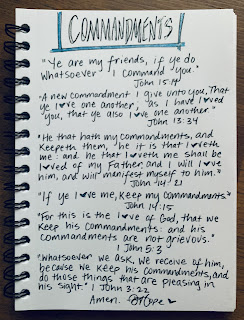 COMMANDMENTS
"Ye are my friends, if ye do
whatsoever I command you."
John 15:14
"A new commandment I give unto you, That
ye love one another, as I have loved
you, that ye also love one another."
John 13:34
"He that hath my commandments, and
keepeth them, he it is that loveth
me: and he that loveth me shall be
loved of my Father, and I will love
him, and will manifest myself to him."
John 14:21
"If ye love me, keep my commandments"
John 14:15
"For this is the love of God, that we
keep his commandments: and his
commandments are not grievous."
1 John 5:3
"Whatsoever we ask, we receive of him,
because we keep his commandments, and
do those things that are pleasing in
his sight." 1 John 3:22
Amen.